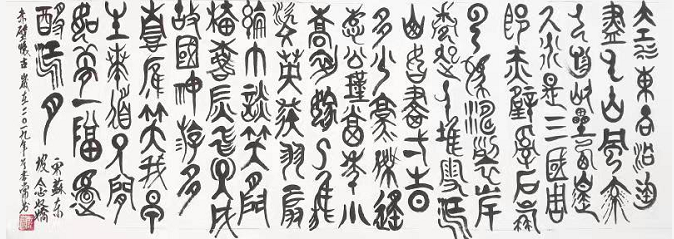 大江東去浪淘
盡千古風流
人物故壘西邊
人道是三國周
郎赤壁亂石崩
雲驚濤裂岸
捲起千堆雪江
山如畫一時
多少豪傑遙
想公瑾當年小
喬初嫁了雄
姿英發羽扇
綸巾談笑間
檣櫓灰飛煙滅
故國神遊多
情應笑我早
生華髮人間
如夢一尊還
酹江月
宋蘇東
坡念奴嬌
赤壁懷古 歲在二〇一九年